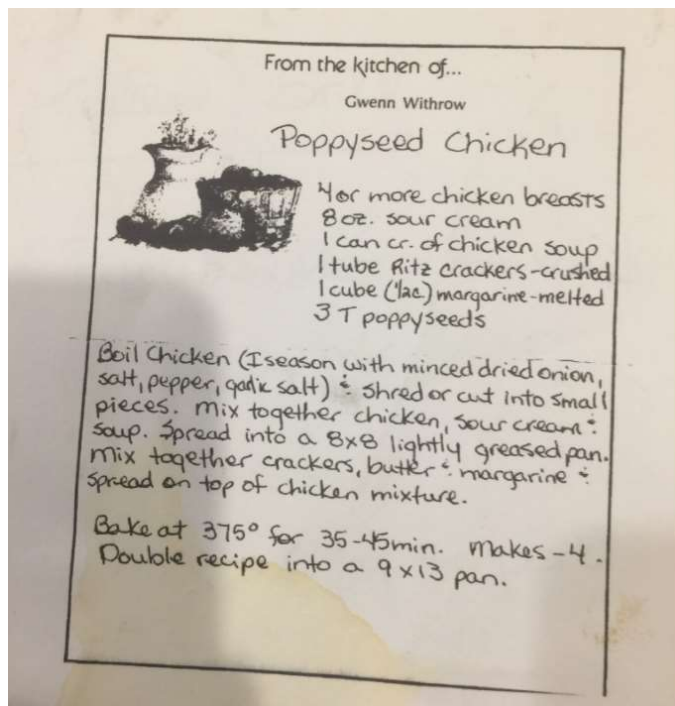 From the kitchen of...
Gwenn Withrow
Poppyseed Chicken
4 or more chicken breasts
8 oz. sour cream
1 can cr. of chicken soup
1 tube Ritz crackers-crushed
1 cube (1/2c.) margarine-melted
3 T poppyseeds
Boil Chicken (I season with minced dried onion,
salt, pepper, garlic salt) & shred or cut into small
pieces. Mix together chicken, sour cream &
soup. Spread into a 8x8 lightly greased pan.
Mix together crackers, butter & margarine &
spread on top of chicken mixture.
Bake at 375° for 35-45min. Makes-4.
Double recipe into a 9x13 pan.